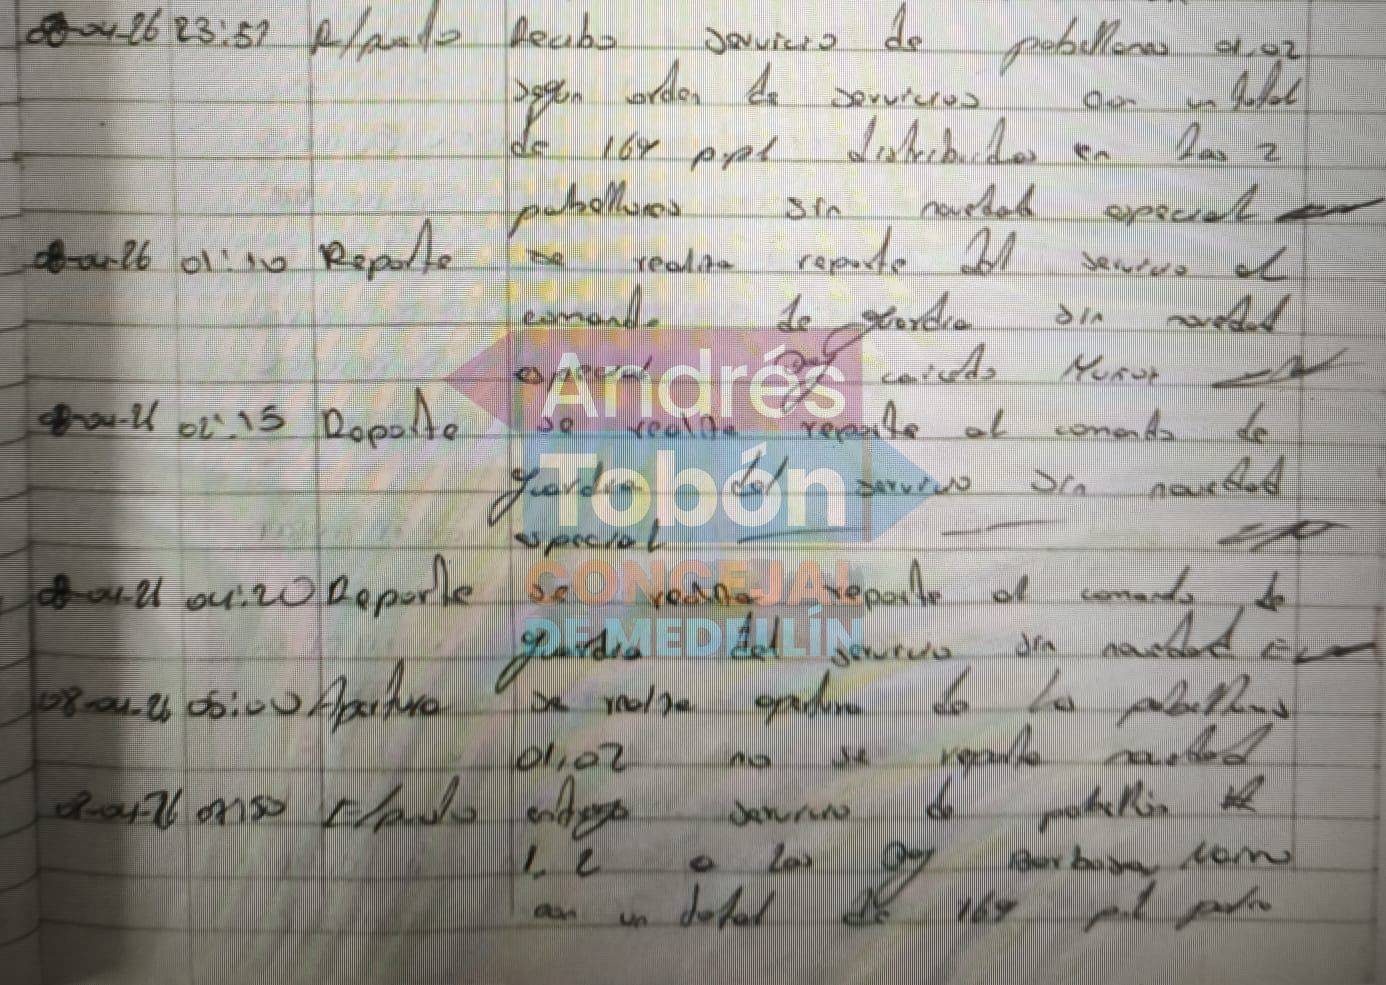 08-04-26 23:57 R/puesto Recibo servicio de pabellones 01,02
segun orden de servicios con un total
de 164 ppl distribuidos en las 2
pabellones sin novedad especial
08-04-26 01:10 Reporte se realiza reporte del servicio al
comando de guardia sin novedad
especial Dg caicedo Munoz
08-04-26 02:15 Reporte se realiza reporte al comando de
guardia del servicio sin novedad
especial
08-04-26 04:20 Reporte se realiza reporte al comando de
guardia del servicio sin novedad
08-04-26 05:00 Apertura se realiza apertura de los pabellones
01,02 no se reporta novedad
08-04-26 07:50 E/puesto entrego servicio de pabellon
1, 2 a los Dg Barbosa
con un total de 164 ppl
Andrés
Tobón
CONCEJAL
DE MEDELLÍN